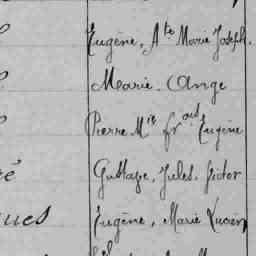 Eugène, Ate Marie Joseph.
Marie. Ange
Pierre Mie frçois Eugène
é Gustave, Jules, Victor
ques Eugène, Marie Lucien